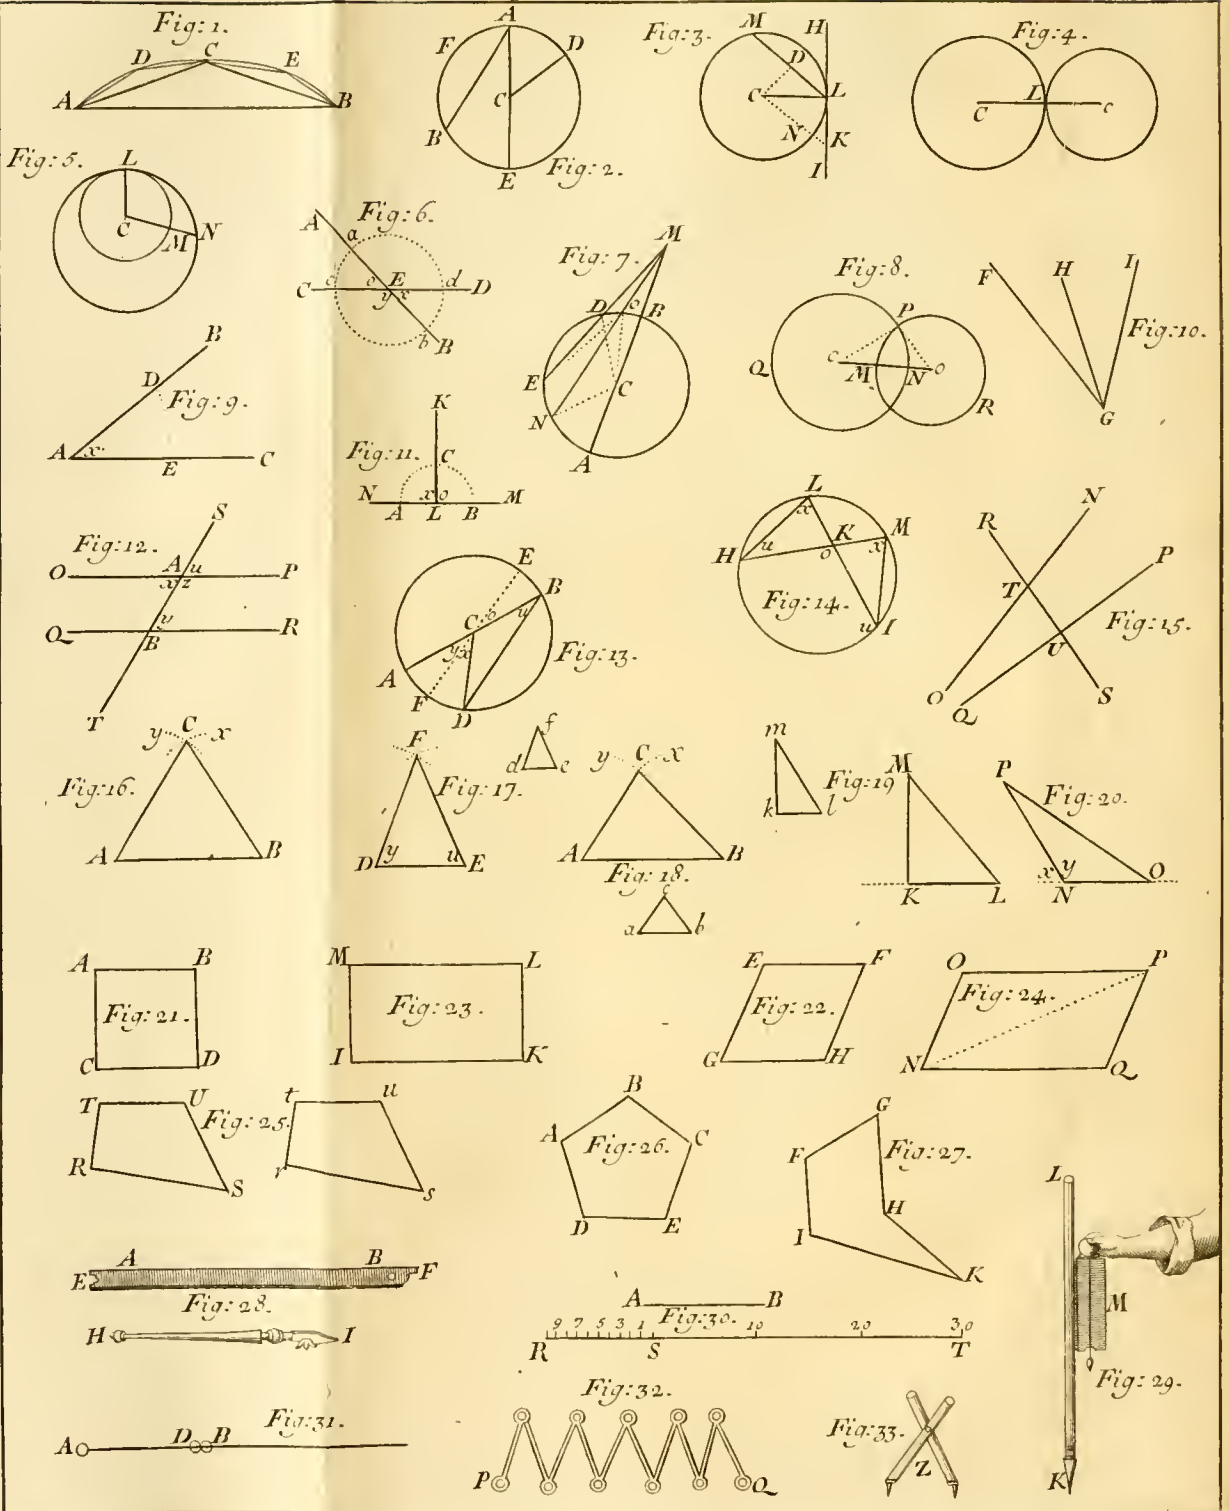 Fig: 1.
D C E
A B
A
F D
C
B
E
Fig: 2.
Fig: 3.
M H
D
C L
N K
I
Fig: 4.
C L c
Fig: 5.
L
C
M N
Fig: 6.
A a
C c o E d D
y x
b B
Fig: 7.
M
D o B
E C
N
A
Fig: 8.
P
Q c M N o
R
F H I
Fig: 10.
G
B
D
Fig: 9.
A x
E C
K
Fig: 11.
C
N x o M
A L B
S
Fig: 12.
O A u P
x z
y
Q B R
T
E
B
C o u
y x
A
F
D
Fig: 13.
L
x
K M
H u o x
Fig: 14.
u I
R N
P
T
Fig: 15.
U
O Q S
y C x
Fig: 16.
A B
F
Fig: 17.
D y u E
f
d e
y C x
A B
Fig: 18.
c
a b
m
k l
Fig: 19
M
K L
P
Fig: 20.
x y
N O
A B
Fig: 21.
C D
M L
Fig: 23.
I K
E F
Fig: 22.
G H
O P
Fig: 24.
N Q
T U
Fig: 25.
R S
t u
r s
B
A C
Fig: 26.
D E
G
F
Fig: 27.
H
I
K
A B
E F
Fig: 28.
H I
L
M
Fig: 29.
K
A B
Fig: 30.
9 7 5 3 1 10 20 30
R S T
Fig: 31.
A D B
Fig: 32.
P Q
Fig: 33.
Z